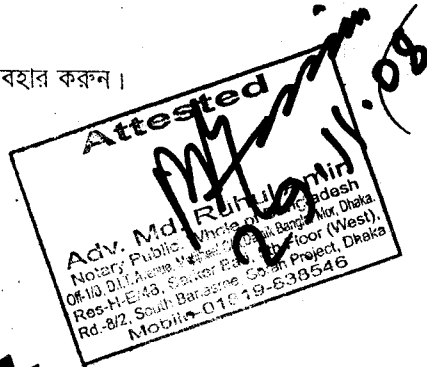 বহার করুন।
Attested
Adv. Md. Ruhul Amin
Notary Public, Whole of Bangladesh
Dainik Bangla Mor, Dhaka.
Res-H-E/48, Floor (West),
Rd.-8/2, South Banasree, Goran Project, Dhaka
Mobile-01819-638546
29.11.08